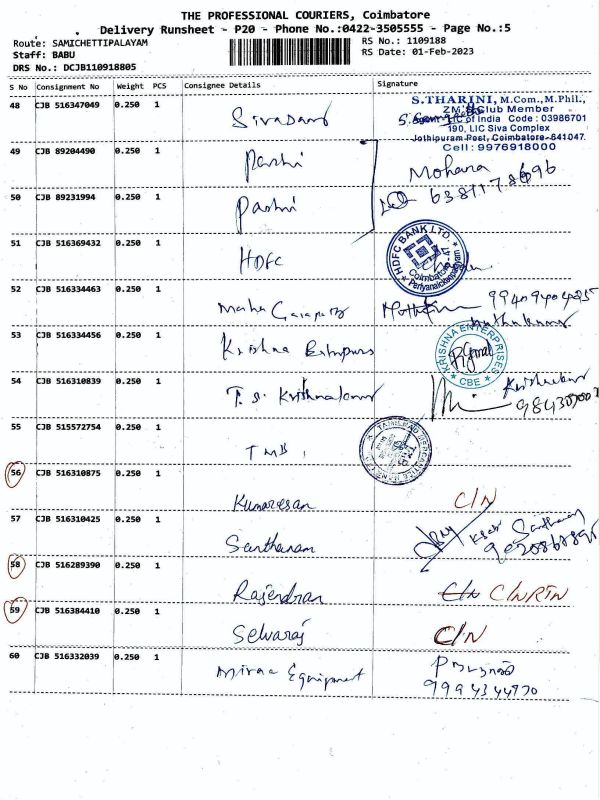 THE PROFESSIONAL COURIERS, Coimbatore
Delivery Runsheet - P20 - Phone No.:0422-3505555 - Page No.:5
Route: SAMICHETTIPALAYAM
Staff: BABU
DRS No.: DCJB110918805
RS No.: 1109188
RS Date: 01-Feb-2023
S No Consignment No Weight PCS Consignee Details Signature
48 CJB 516347049 0.250 1
S.THARINI, M.Com., M.Phil.,
ZM's Club Member
LIC of India Code : 03986701
190, LIC Siva Complex
Jothipuram Post, Coimbatore-641047.
Cell : 9976918000
49 CJB 89204490 0.250 1
Mohana
50 CJB 89231994 0.250 1
51 CJB 516369432 0.250 1 HDFC
HDFC BANK LTD.
Coimbatore-47
Periyanaickenpalayam
52 CJB 516334463 0.250 1 Maha
53 CJB 516334456 0.250 1 Krishna
KRISHNA ENTERPRISES
CBE
54 CJB 516310839 0.250 1 T. S. Krishnakumar
55 CJB 515572754 0.250 1 TMB
TAMILNAD MERCANTILE BANK
56 CJB 516310875 0.250 1 Kumaresan C/N
57 CJB 516310425 0.250 1 Santhanam
58 CJB 516289390 0.250 1 Rajendran C/N C/NRTN
59 CJB 516384410 0.250 1 Selvaraj C/N
60 CJB 516332039 0.250 1 Equipment
9994344770